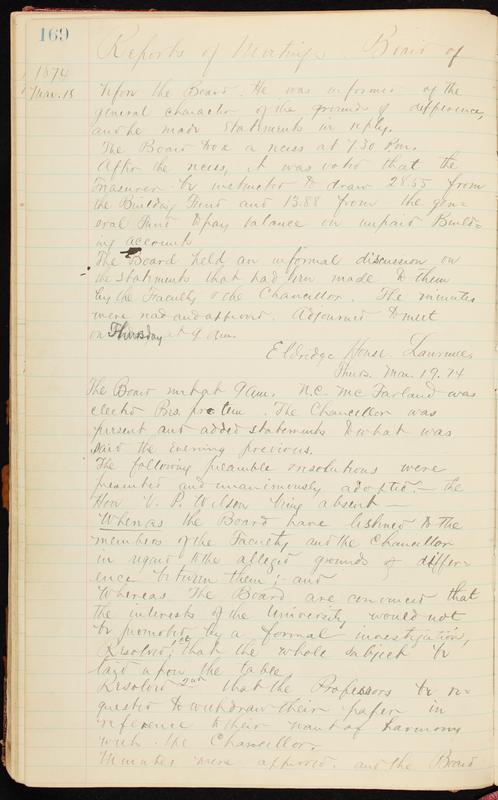 169
Reports of Meetings Board of
1874
Mar. 18 before the Board. He was informed of the
general character of the grounds of difference,
and he made statements in reply.
The Board took a recess at 7.30 P.m.
After the recess, it was voted that the
Treasurer be instructed to draw 28.55 from
the Building Fund and 13.88 from the gen=
eral Fund to pay balance on unpaid Build=
ing accounts
The Board held an informal discussion on
the statements that had been made to them
by the Faculty & the Chancellor. The minutes
were read and approved. Adjourned to meet
on Thursday at 9 a.m.
Eldridge House. Lawrence,
Thurs. Mar. 19. 74
The Board met at 9 am. N.C. McFarland was
elected Pres. pro tem. The Chancellor was
present and added statements to what was
said the evening previous.
The following preamble resolutions were
presented and unanimously adopted:— the
Hon V. P. Wilson being absent—
Whereas the Board have listened to the
members of the Faculty and the Chancellor
in regard to the alleged grounds of differ=
ence between them;- and
Whereas The Board are convinced that
the interests of the University would not
be promoted by a formal investigation,
Resolved, 1st that the whole subject be
laid upon the table
Resolved 2nd that the Professors be re=
quested to withdraw their paper in
reference to their want of harmony
with the Chancellor.
Minutes were approved. and the Board